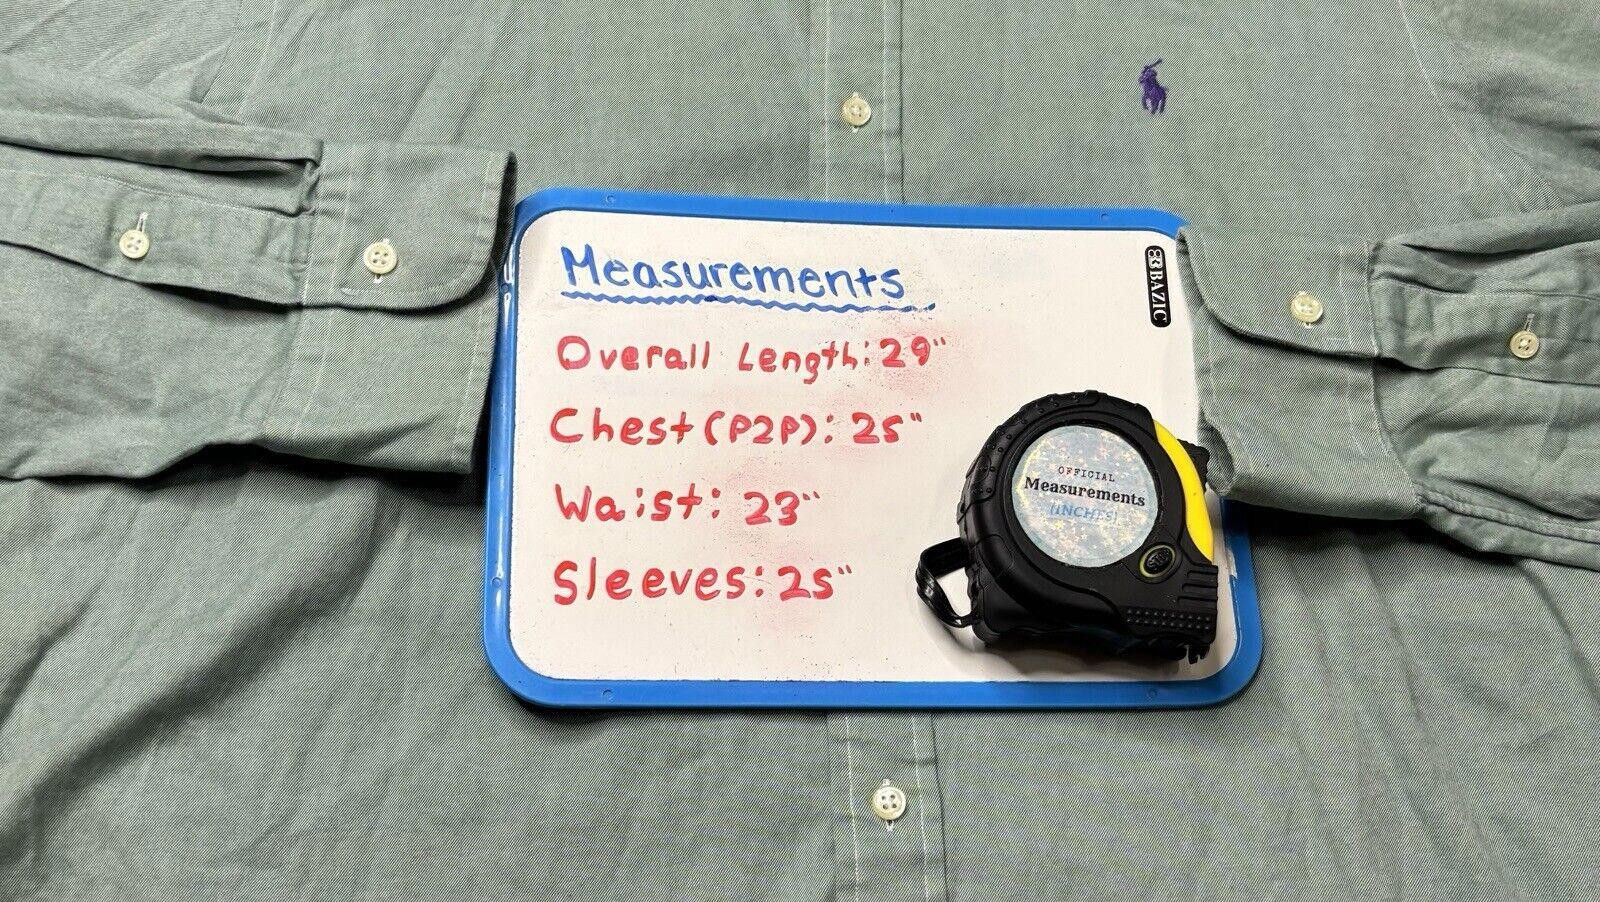 Measurements
BAZIC
Overall Length: 29"
Chest (P2P): 25"
Waist: 23"
Sleeves: 25"
OFFICIAL
Measurements
(INCHES)